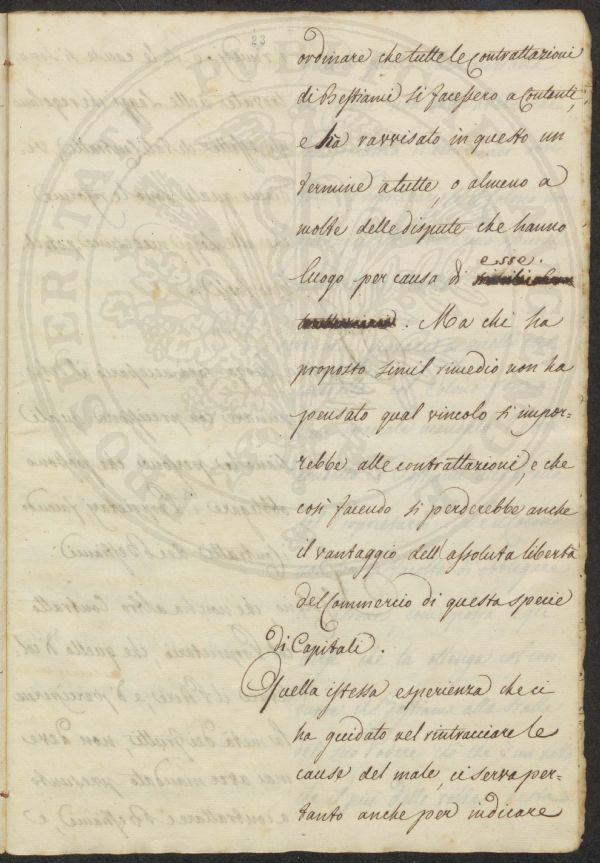 23
ordinare che tutte le Contrattazioni
di Bestiami si facessero a Contanti,
e ha ravvisato in questo un
termine a tutte, o almeno a
molte delle dispute che hanno
luogo per causa di esse.
. Ma chi ha
proposto simil rimedio non ha
pensato qual vincolo si impor-
rebbe alle contrattazioni, e che
così facendo si perderebbe anche
il vantaggio dell'assoluta libertà
del Commercio di questa specie
di Capitali.
Quella istessa esperienza che ci
ha guidato nel rintracciare le
cause del male, ci serva per-
tanto anche per indicare